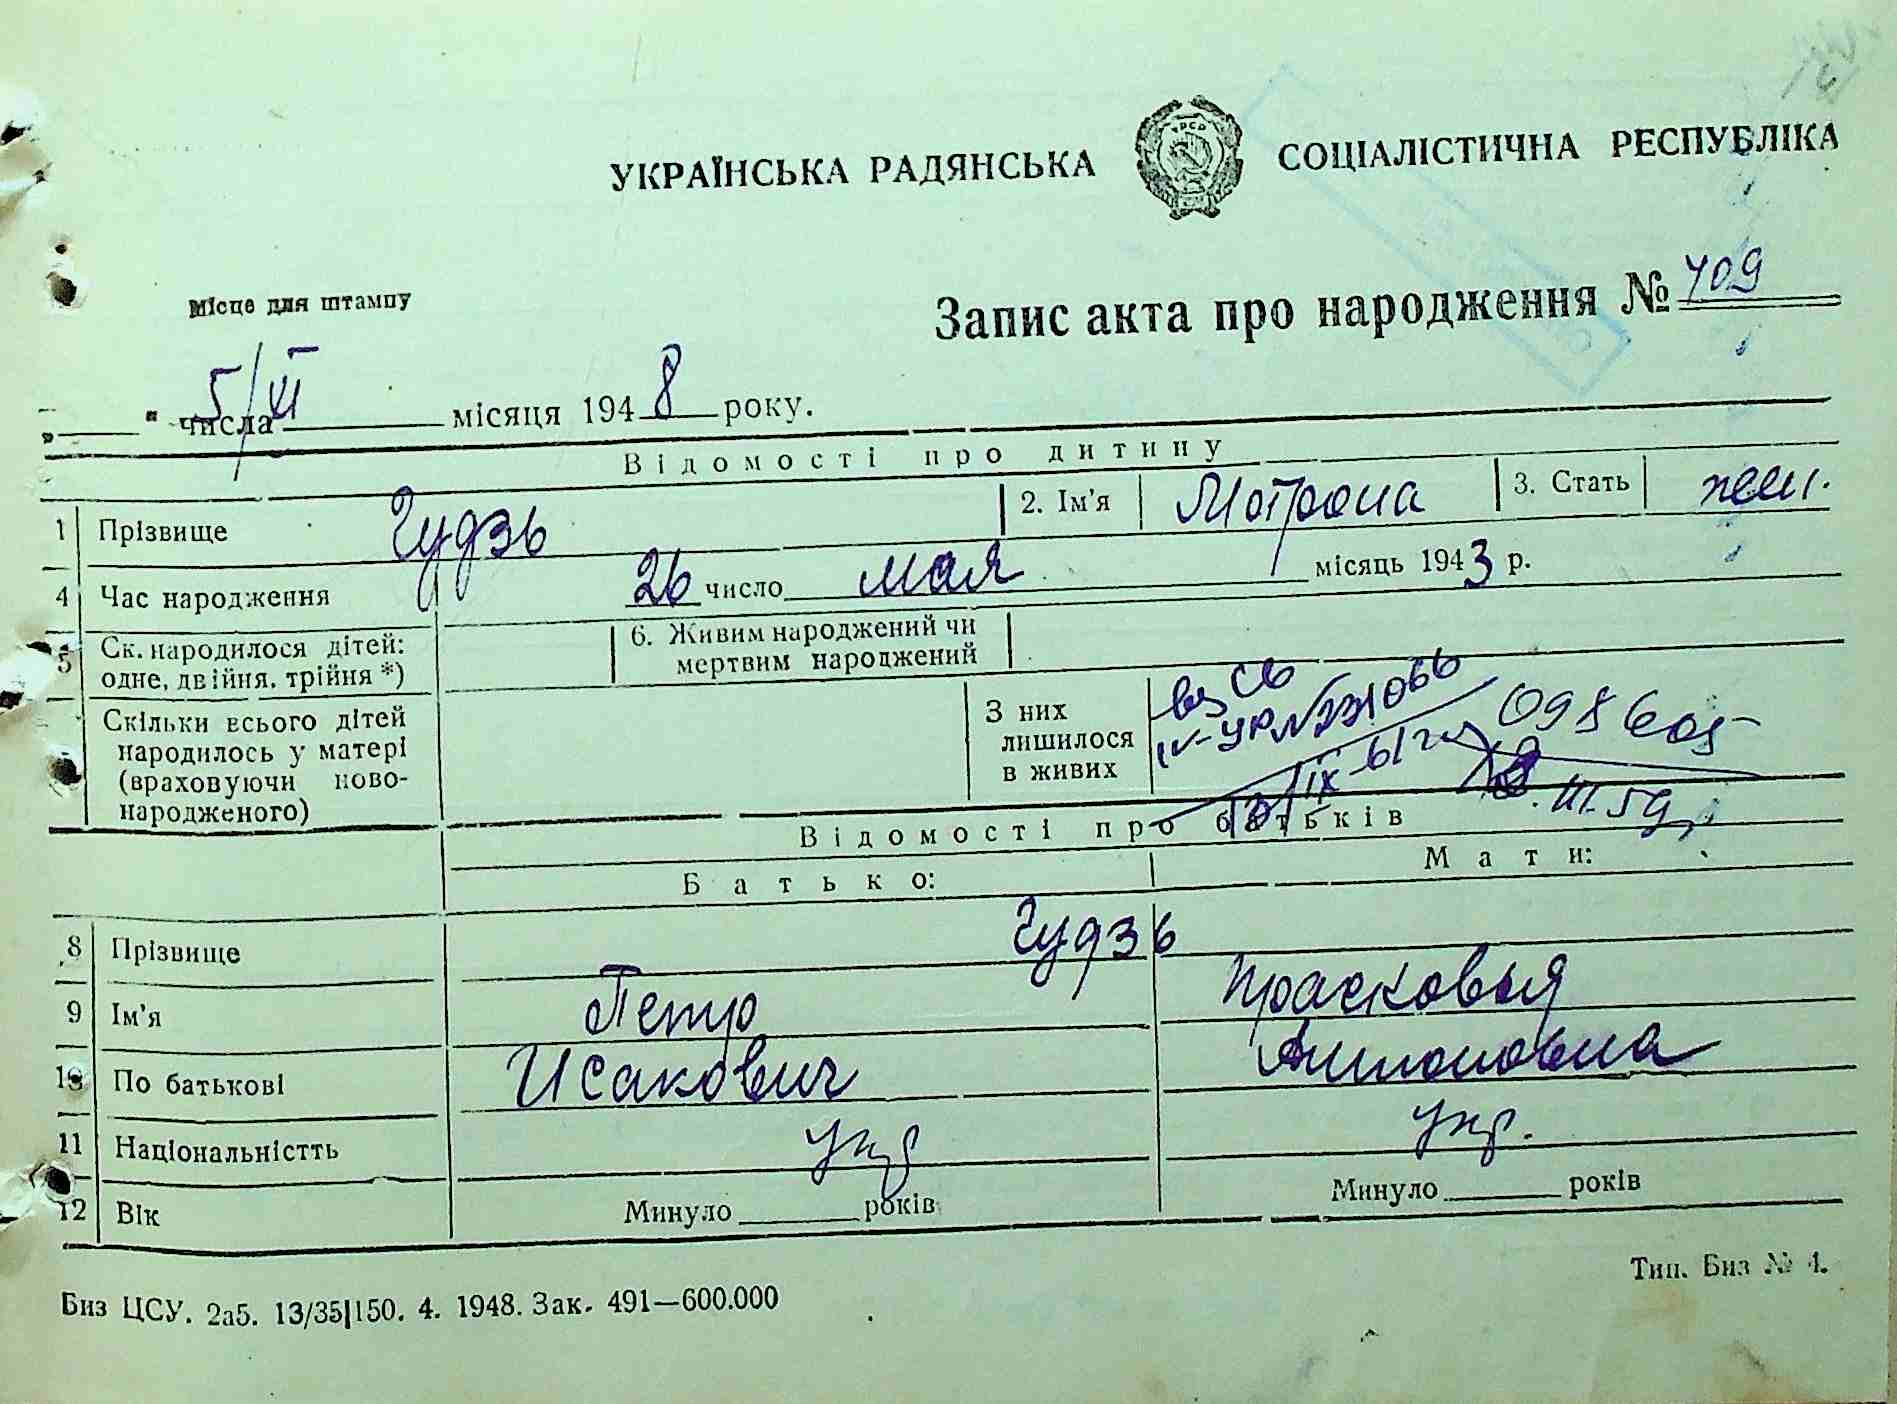 УКРАЇНСЬКА РАДЯНСЬКА СОЦІАЛІСТИЧНА РЕСПУБЛІКА
УРСР
Місце для штампу
Запис акта про народження № 709
" " числа 5/VI місяця 1948 року.
Відомості про дитину
1 Прізвище Гудзь 2. Ім'я Мотрона 3. Стать жен.
4 Час народження 26 число мая місяць 1943 р.
5 Ск. народилося дітей: одне, двійня, трійня *) 6. Живим народжений чи мертвим народжений
Скільки всього дітей народилось у матері (враховуючи ново-народженого) З них лишилося в живих
IV-УР №
IX-61 г.
III.59
Відомості про батьків
Батько: Мати:
8 Прізвище Гудзь
9 Ім'я Петр Прасковья
10 По батькові Исакович Антоновна
11 Національністть укр укр.
12 Вік Минуло ______ років Минуло ______ років
Биз ЦСУ. 2а5. 13/35|150. 4. 1948. Зак. 491—600.000
Тип. Биз № 4.